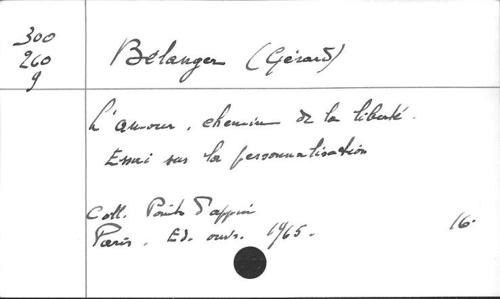 300
260
9
Bélanger (Gérard)
L'amour, chemin de la liberté.
Essai sur la personnalisation
Coll. Points d'appui
Paris. Ed. ouvr. 1965.
16.